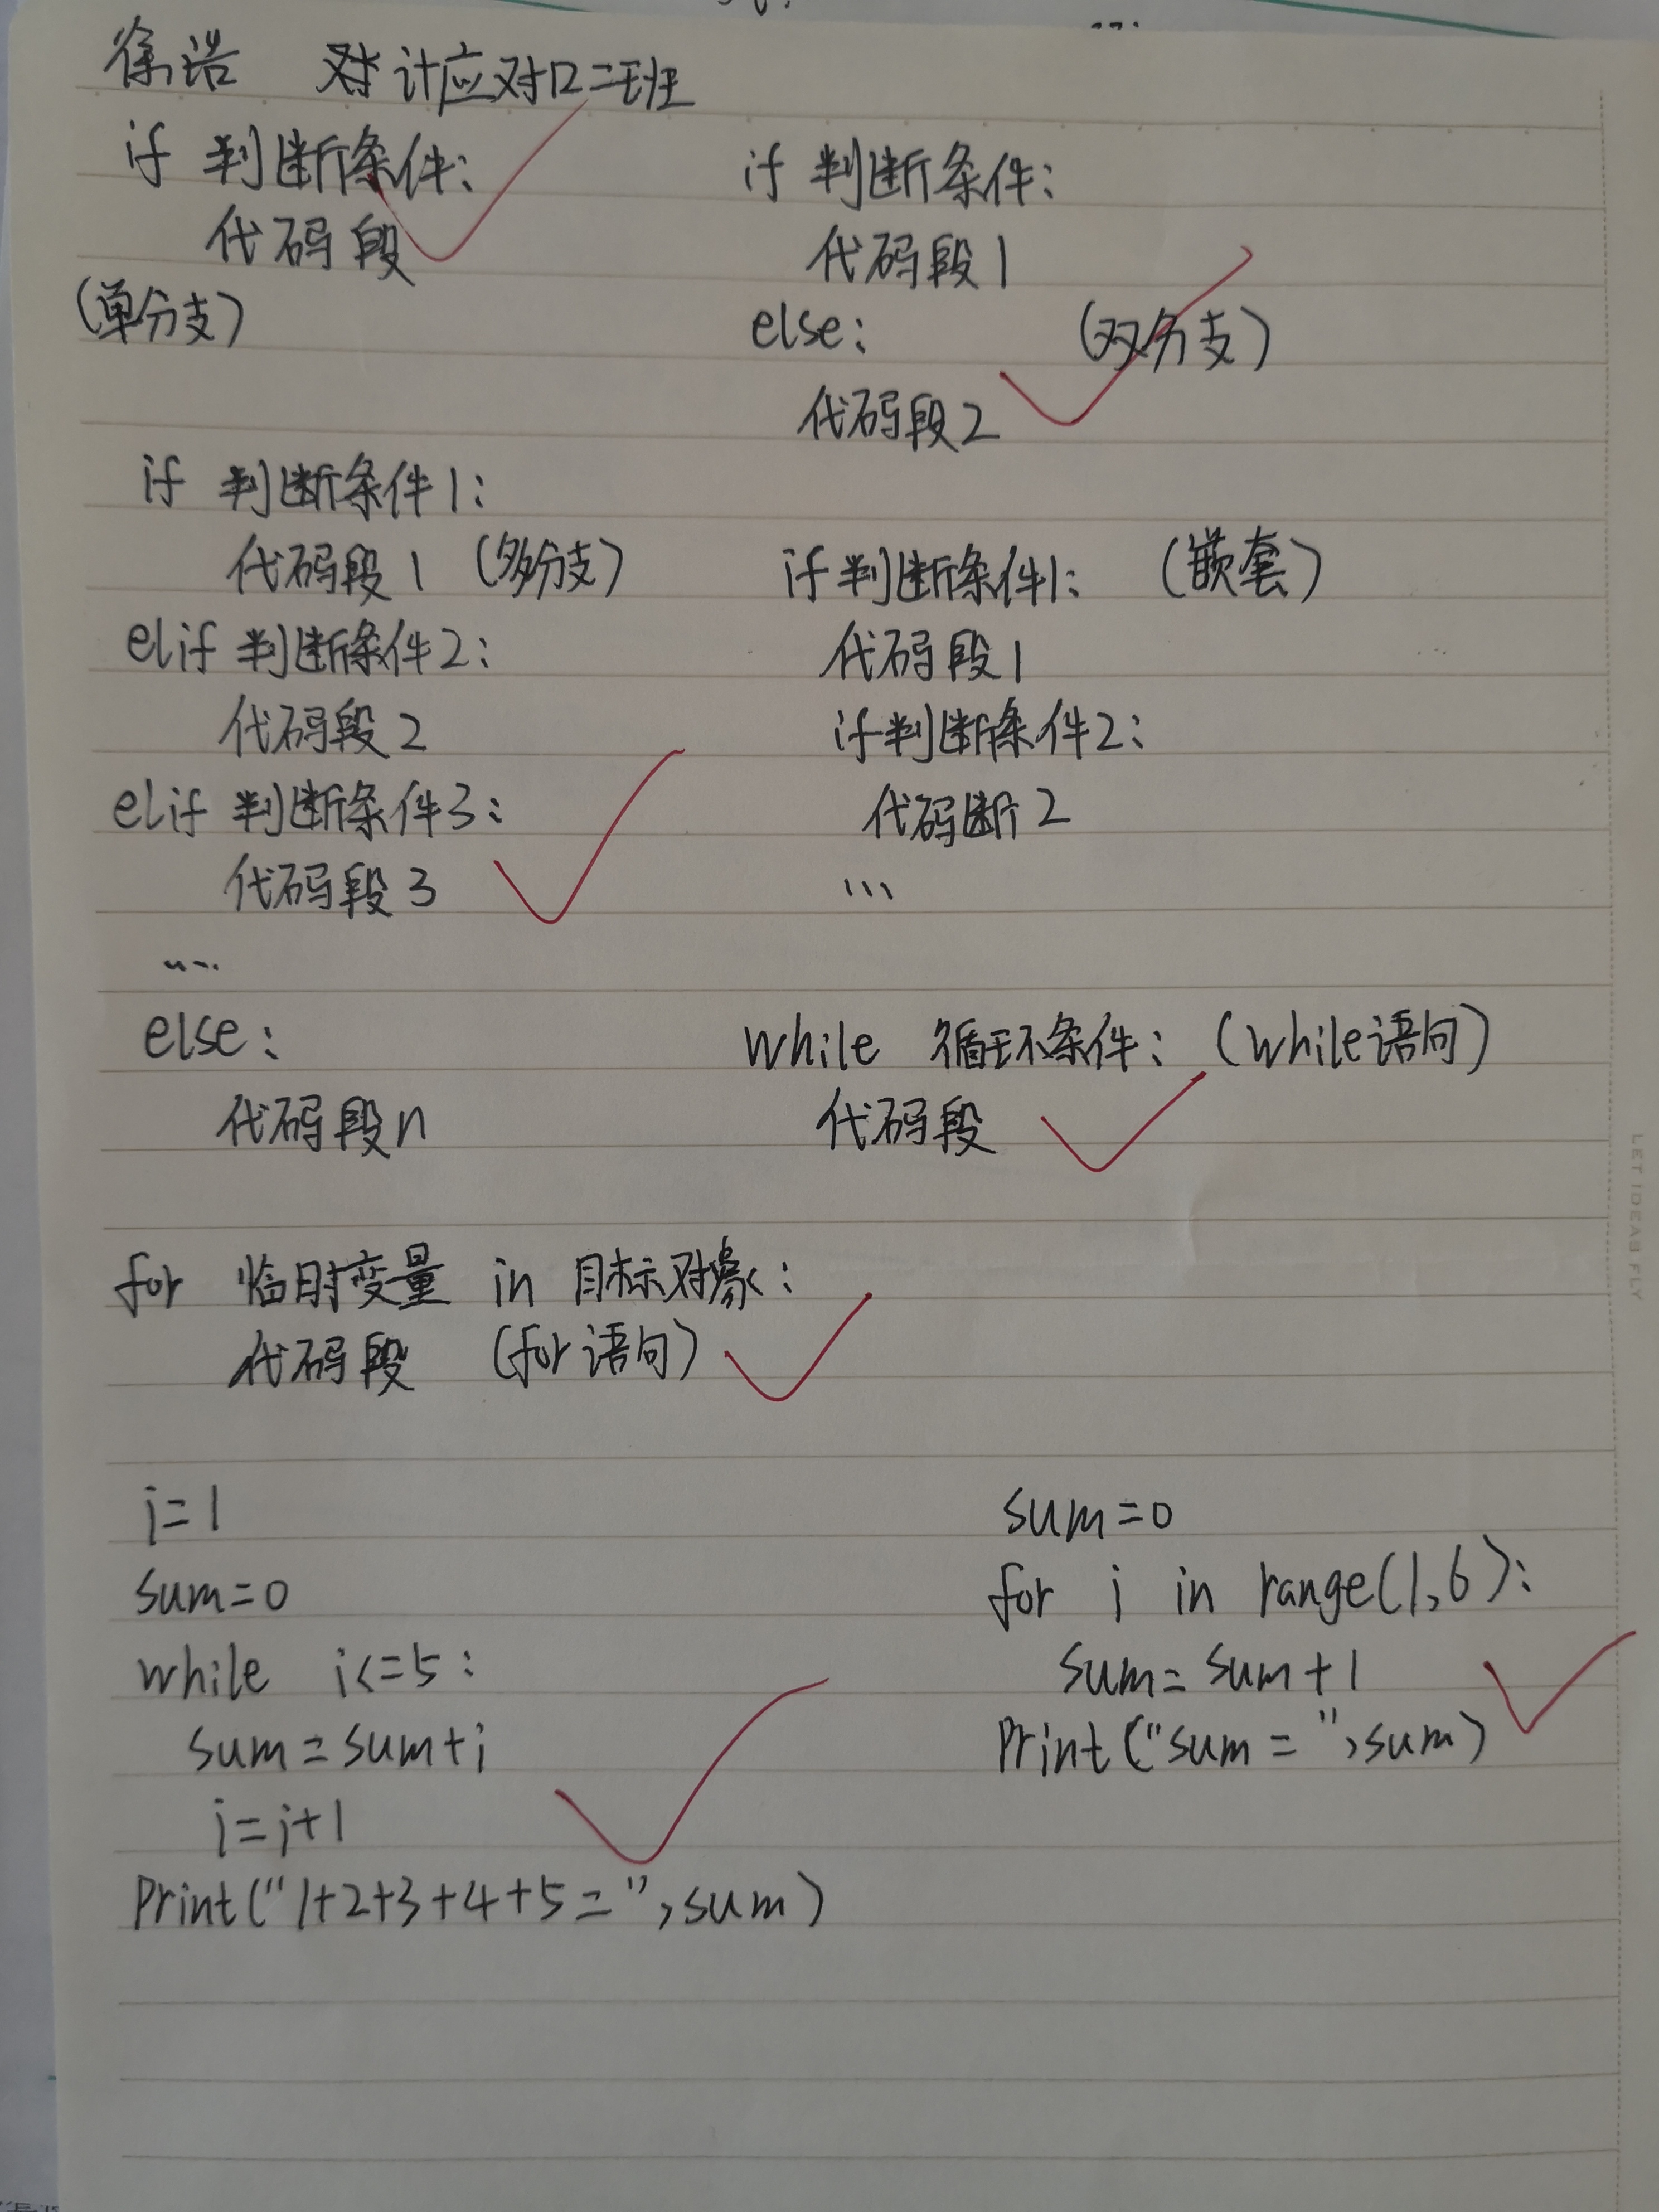 徐浩 计应对口二班
if 判断条件:
代码段
(单分支)
if 判断条件:
代码段1
else: (双分支)
代码段2
if 判断条件1:
代码段1 (多分支)
elif 判断条件2:
代码段2
elif 判断条件3:
代码段3
....
else:
代码段n
if 判断条件1: (嵌套)
代码段1
if 判断条件2:
代码断2
...
while 循环条件: (while语句)
代码段
for 临时变量 in 目标对象:
代码段 (for语句)
i=1
sum=0
while i<=5:
sum=sum+i
i=i+1
Print("1+2+3+4+5=",sum)
sum=0
for i in range(1,6):
sum=sum+1
Print("sum=",sum)
LET IDEAS FLY